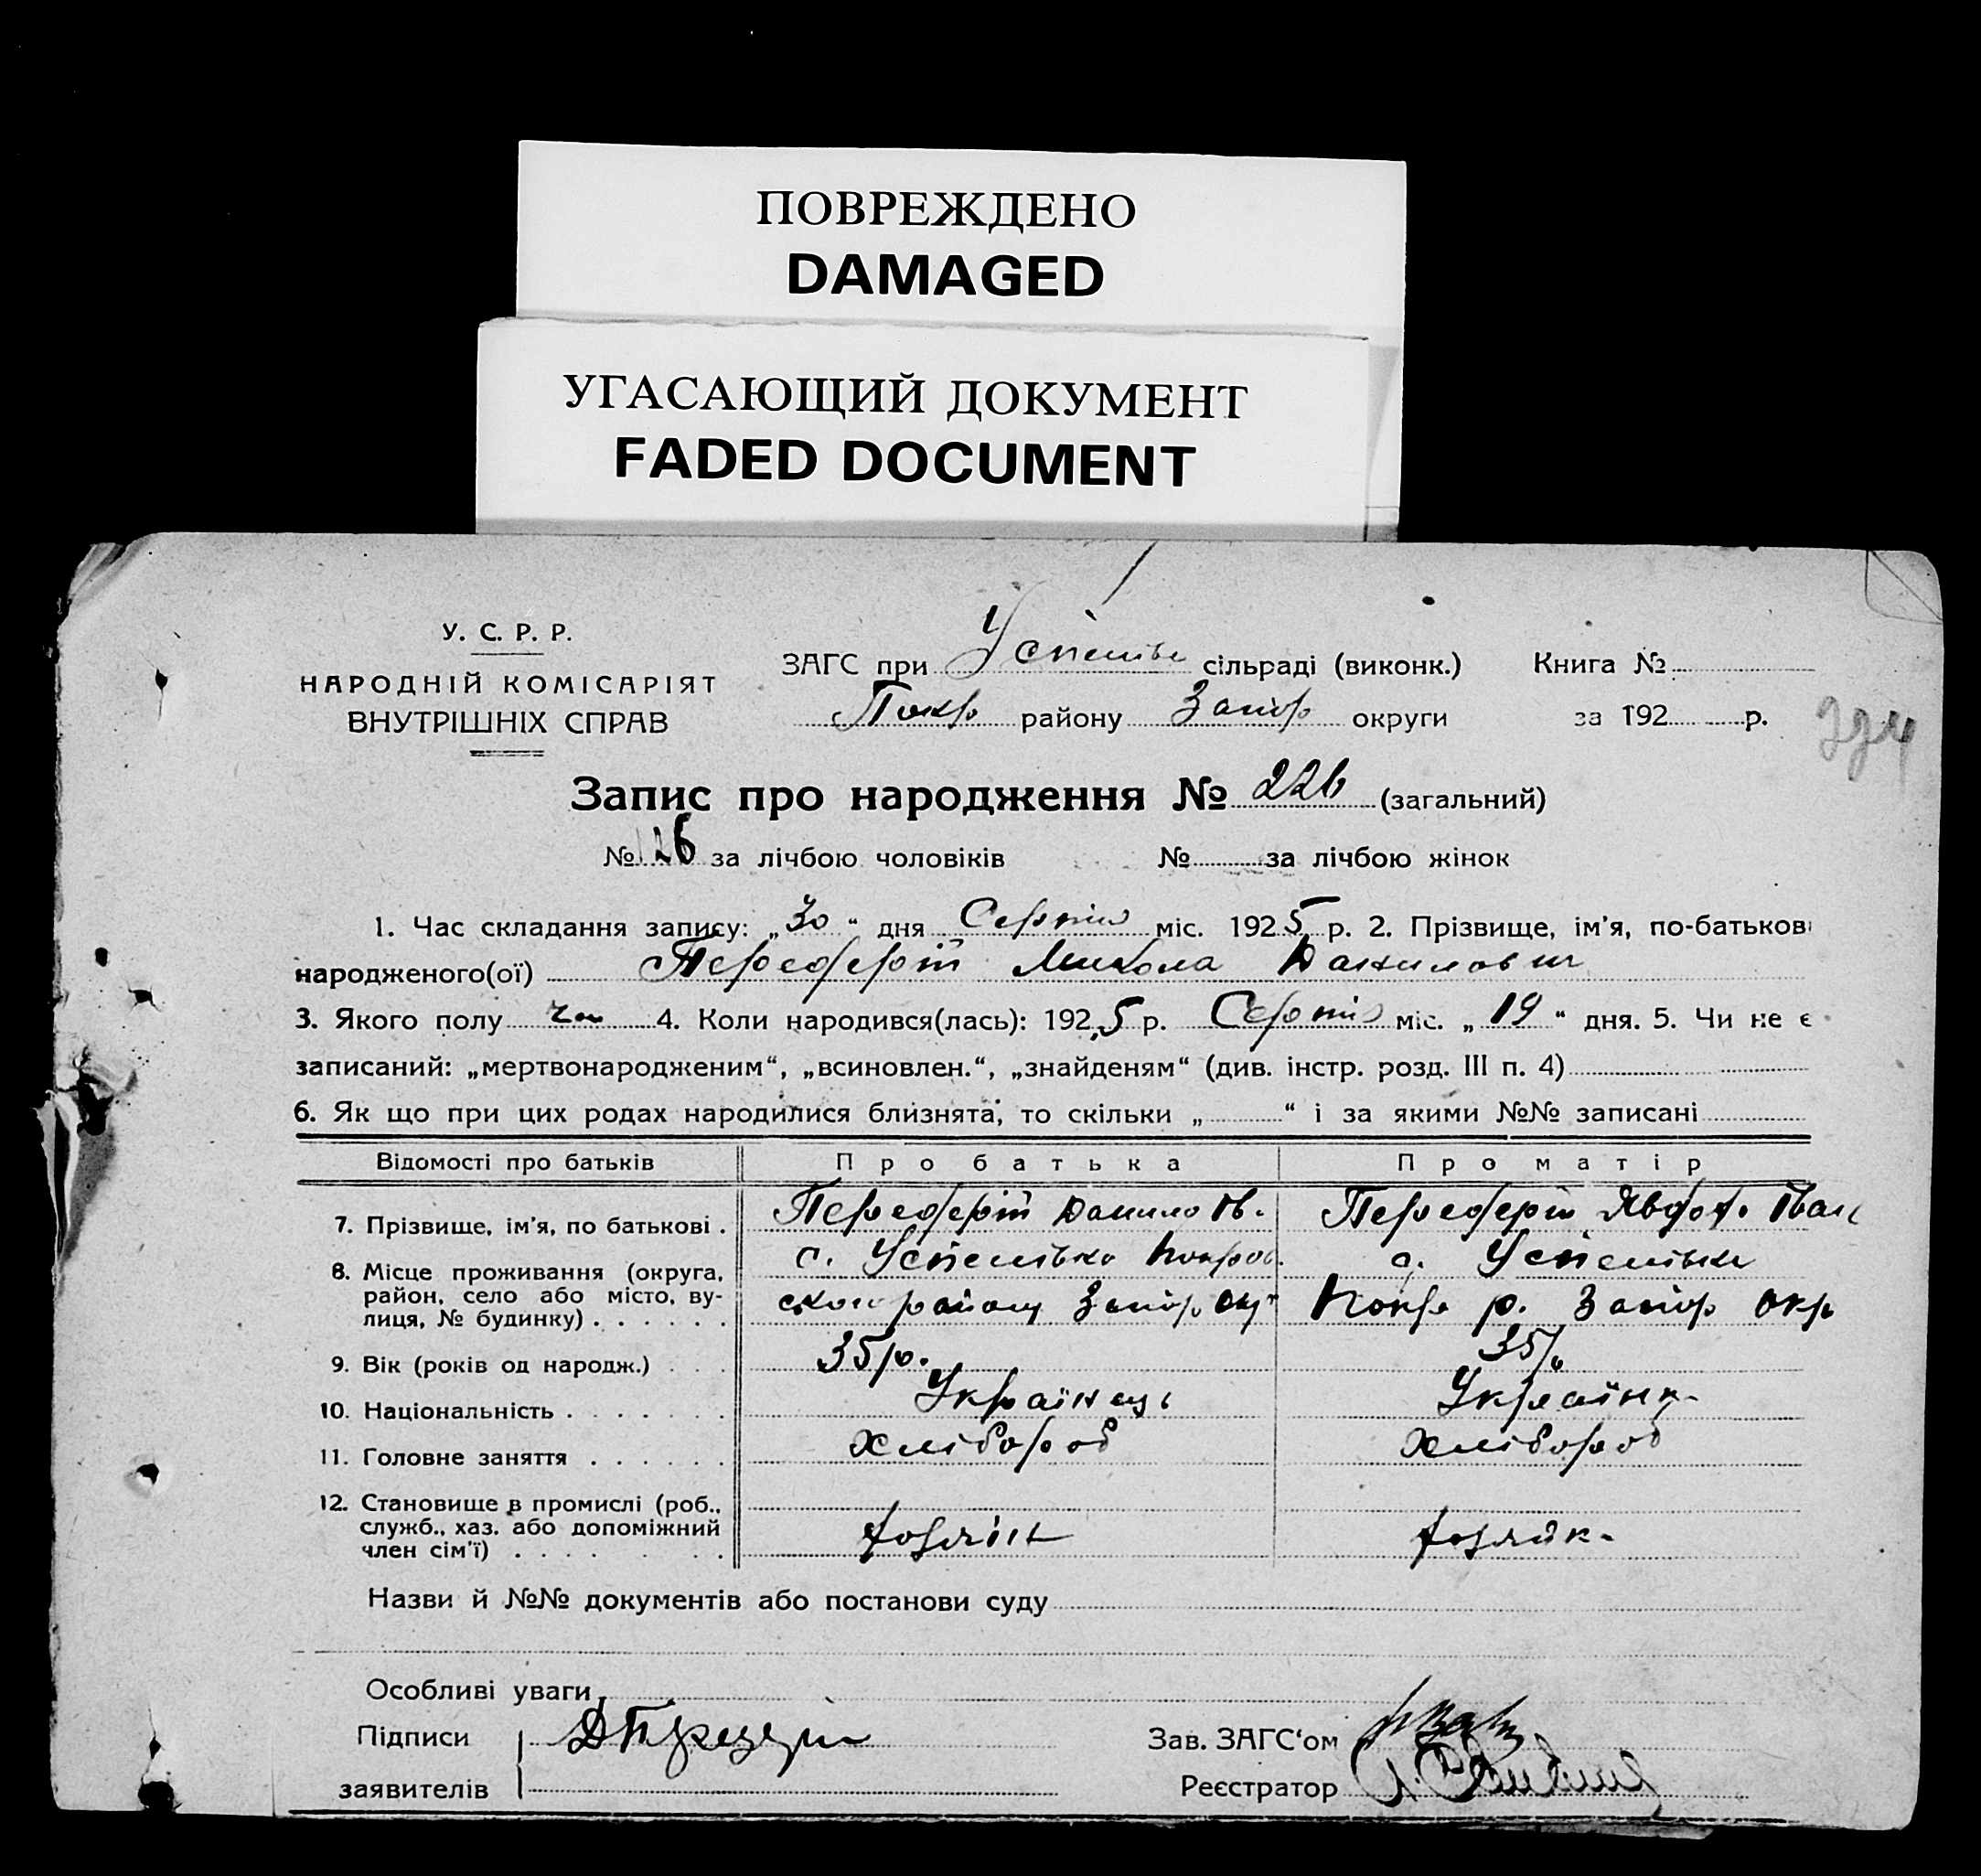 ПОВРЕЖДЕНО
DAMAGED
УГАСАЮЩИЙ ДОКУМЕНТ
FADED DOCUMENT
У. С. Р. Р.
НАРОДНІЙ КОМІСАРІЯТ
ВНУТРІШНІХ СПРАВ
ЗАГС при Успенівс сільраді (виконк.) Книга №
Покр району Запор округи за 192 р.
Запис про народження № 226 (загальний)
№ 126 за лічбою чоловіків № за лічбою жінок
1. Час складання запису: „30“ дня Серпня міс. 1925 р. 2. Прізвище, ім'я, по-батькові
народженого(ої) Передерій Микола Данилович
3. Якого полу чол 4. Коли народився(лась): 1925 р. Серпня міс. „19“ дня. 5. Чи не є
записаний: „мертвонародженим“, „всиновлен.“, „знайденям“ (див. інстр. розд. III п. 4)
6. Як що при цих родах народилися близнята, то скільки „ “ і за якими №№ записані
Відомості про батьків Про батька Про матір
7. Прізвище, ім'я, по батькові . Передерій Данило Ів. Передерій Явдок. Іван
8. Місце проживання (округа, с. Успенівка Покров. с. Успенівка
район, село або місто, ву-
лиця, № будинку) . . . . . . ского району Запор окр Покр р. Запор окр
9. Вік (років од народж.) . . . 35 р. 35 р
10. Національність . . . . . . . Українець Українка
11. Головне заняття . . . . . . Хлібороб Хлібороб
12. Становище в промислі (роб.,
служб., хаз. або допоміжний
член сім'ї) . . . . . . . хозяїн хозяйк.
Назви й №№ документів або постанови суду
Особливі уваги
Підписи
заявителів
Зав. ЗАГС‘ом
Реєстратор